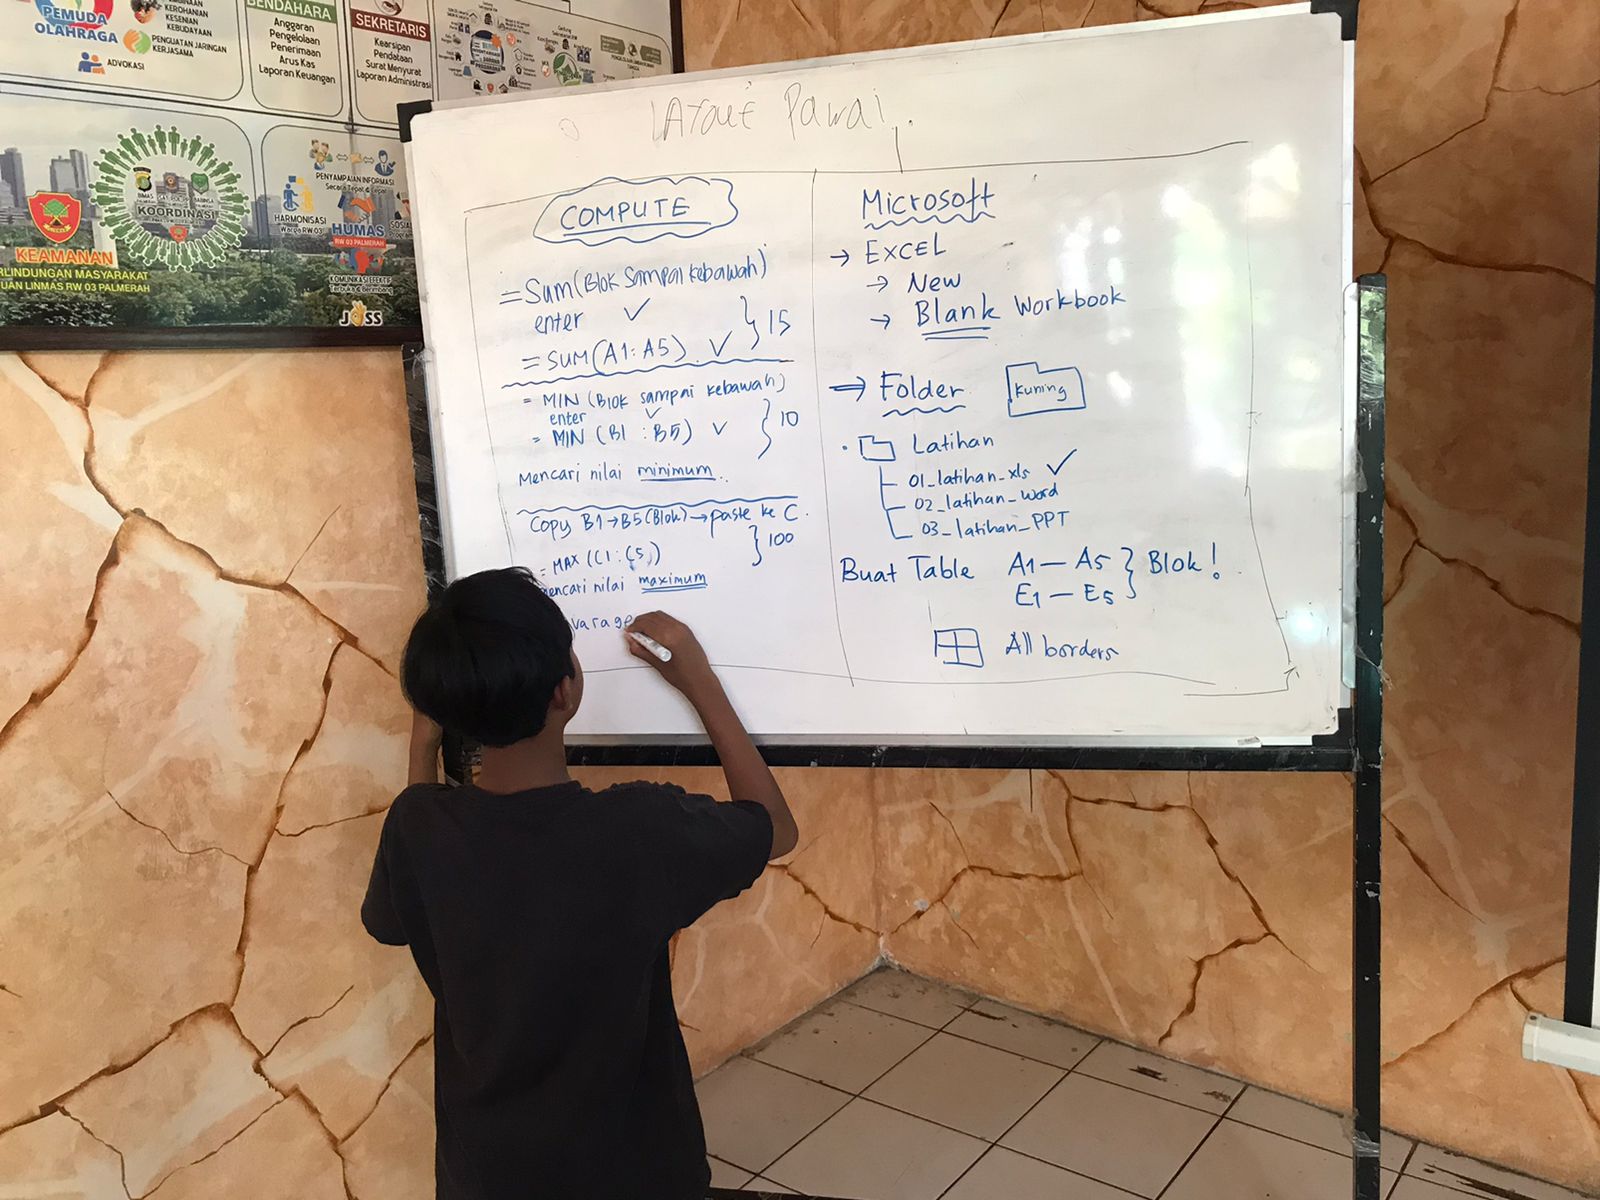 PEMUDA
OLAHRAGA
KEROHANIAN
KESENIAN
KEBUDAYAAN
PENGUATAN JARINGAN
KERJASAMA
ADVOKASI
BENDAHARA
Anggaran
Pengelolaan
Penerimaan
Arus Kas
Laporan Keuangan
SEKRETARIS
Kearsipan
Pendataan
Surat Menyurat
Laporan Administrasi
KOORDINASI
KEAMANAN
RLINDUNGAN MASYARAKAT
UAN LINMAS RW 03 PALMERAH
PENYAMPAIAN INFORMASI
Secara Tepat & Cepat
HARMONISASI
Warga RW 03
HUMAS
RW 03 PALMERAH
KOMUNIKASI EFEKTIF
Terbuka & Berimbang
JOSS
LAYOUT Pawai.
COMPUTE
=Sum(Blok Sampai kebawah)
enter ✓
= SUM(A1:A5) ✓ } 15
= MIN (Blok sampai kebawah)
enter ✓
= MIN (B1 : B5) ✓ } 10
Mencari nilai minimum..
Copy B1→B5(Blok)→paste ke C.
= MAX ((1:C5) } 100
encari nilai maximum
varage
Microsoft
→ EXCEL
→ New
→ Blank Workbook
→ Folder Kuning
• Latihan
01_latihan_xls ✓
02_latihan_word
03_latihan_PPT
Buat Table A1 — A5 } Blok!
E1 — E5
All borders